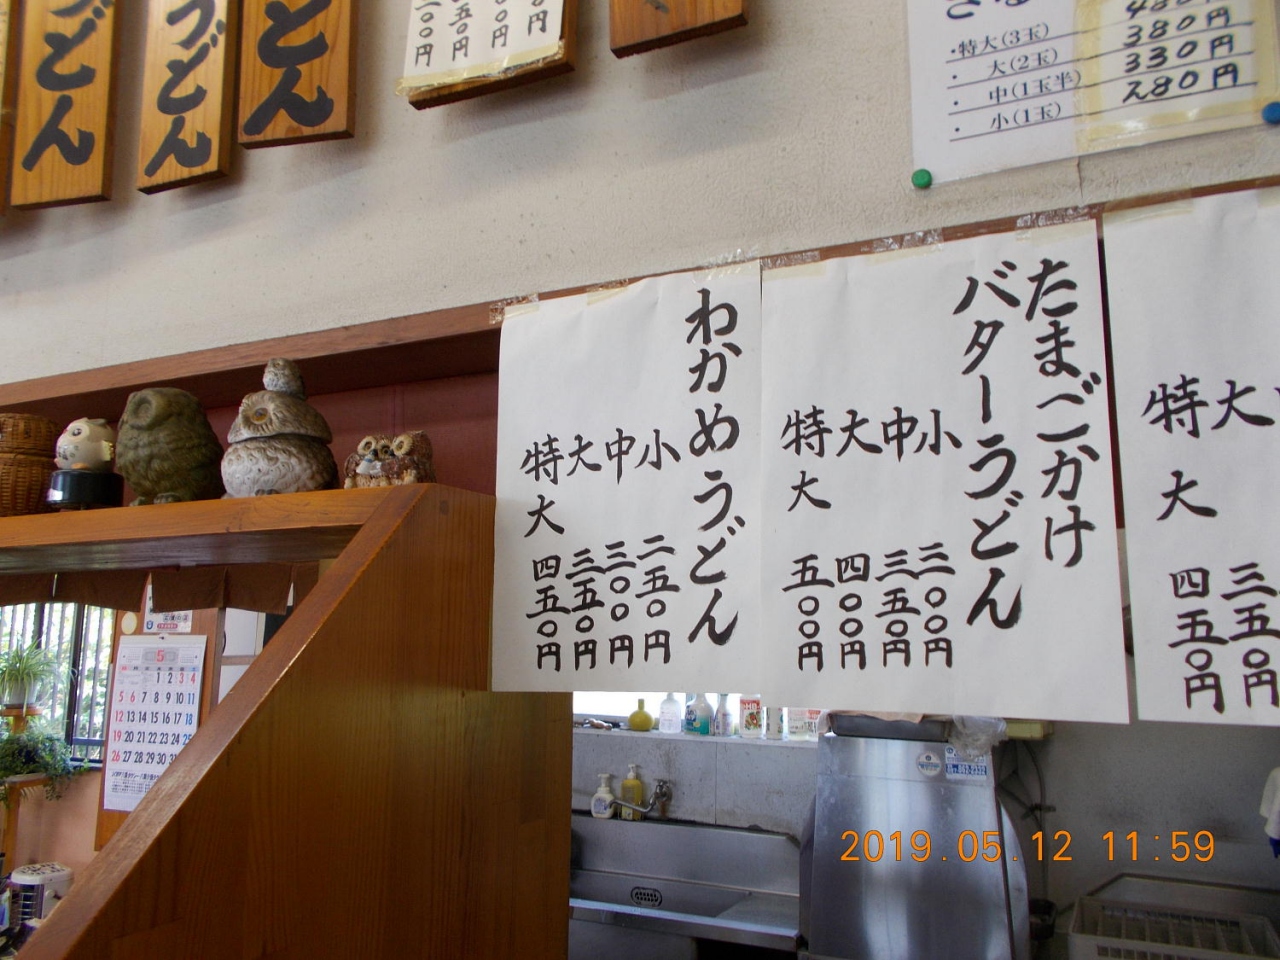 づどん
うどん
どん
円
〇〇円
五〇円
〇〇円
・特大(3玉)
・ 大(2玉) 380円
・ 中(1玉半) 330円
・ 小(1玉) 280円
わかめうどん
小 二五〇円
中 三〇〇円
大 三五〇円
特大 四五〇円
たまごかけ
バターうどん
小 三〇〇円
中 三五〇円
大 四〇〇円
特大 五〇〇円
大 三五〇円
特大 四五〇円
5
1 2 3 4
5 6 7 8 9 10 11
12 13 14 15 16 17 18
19 20 21 22 23 24 25
26 27 28 29 30 31
2019.05.12 11:59